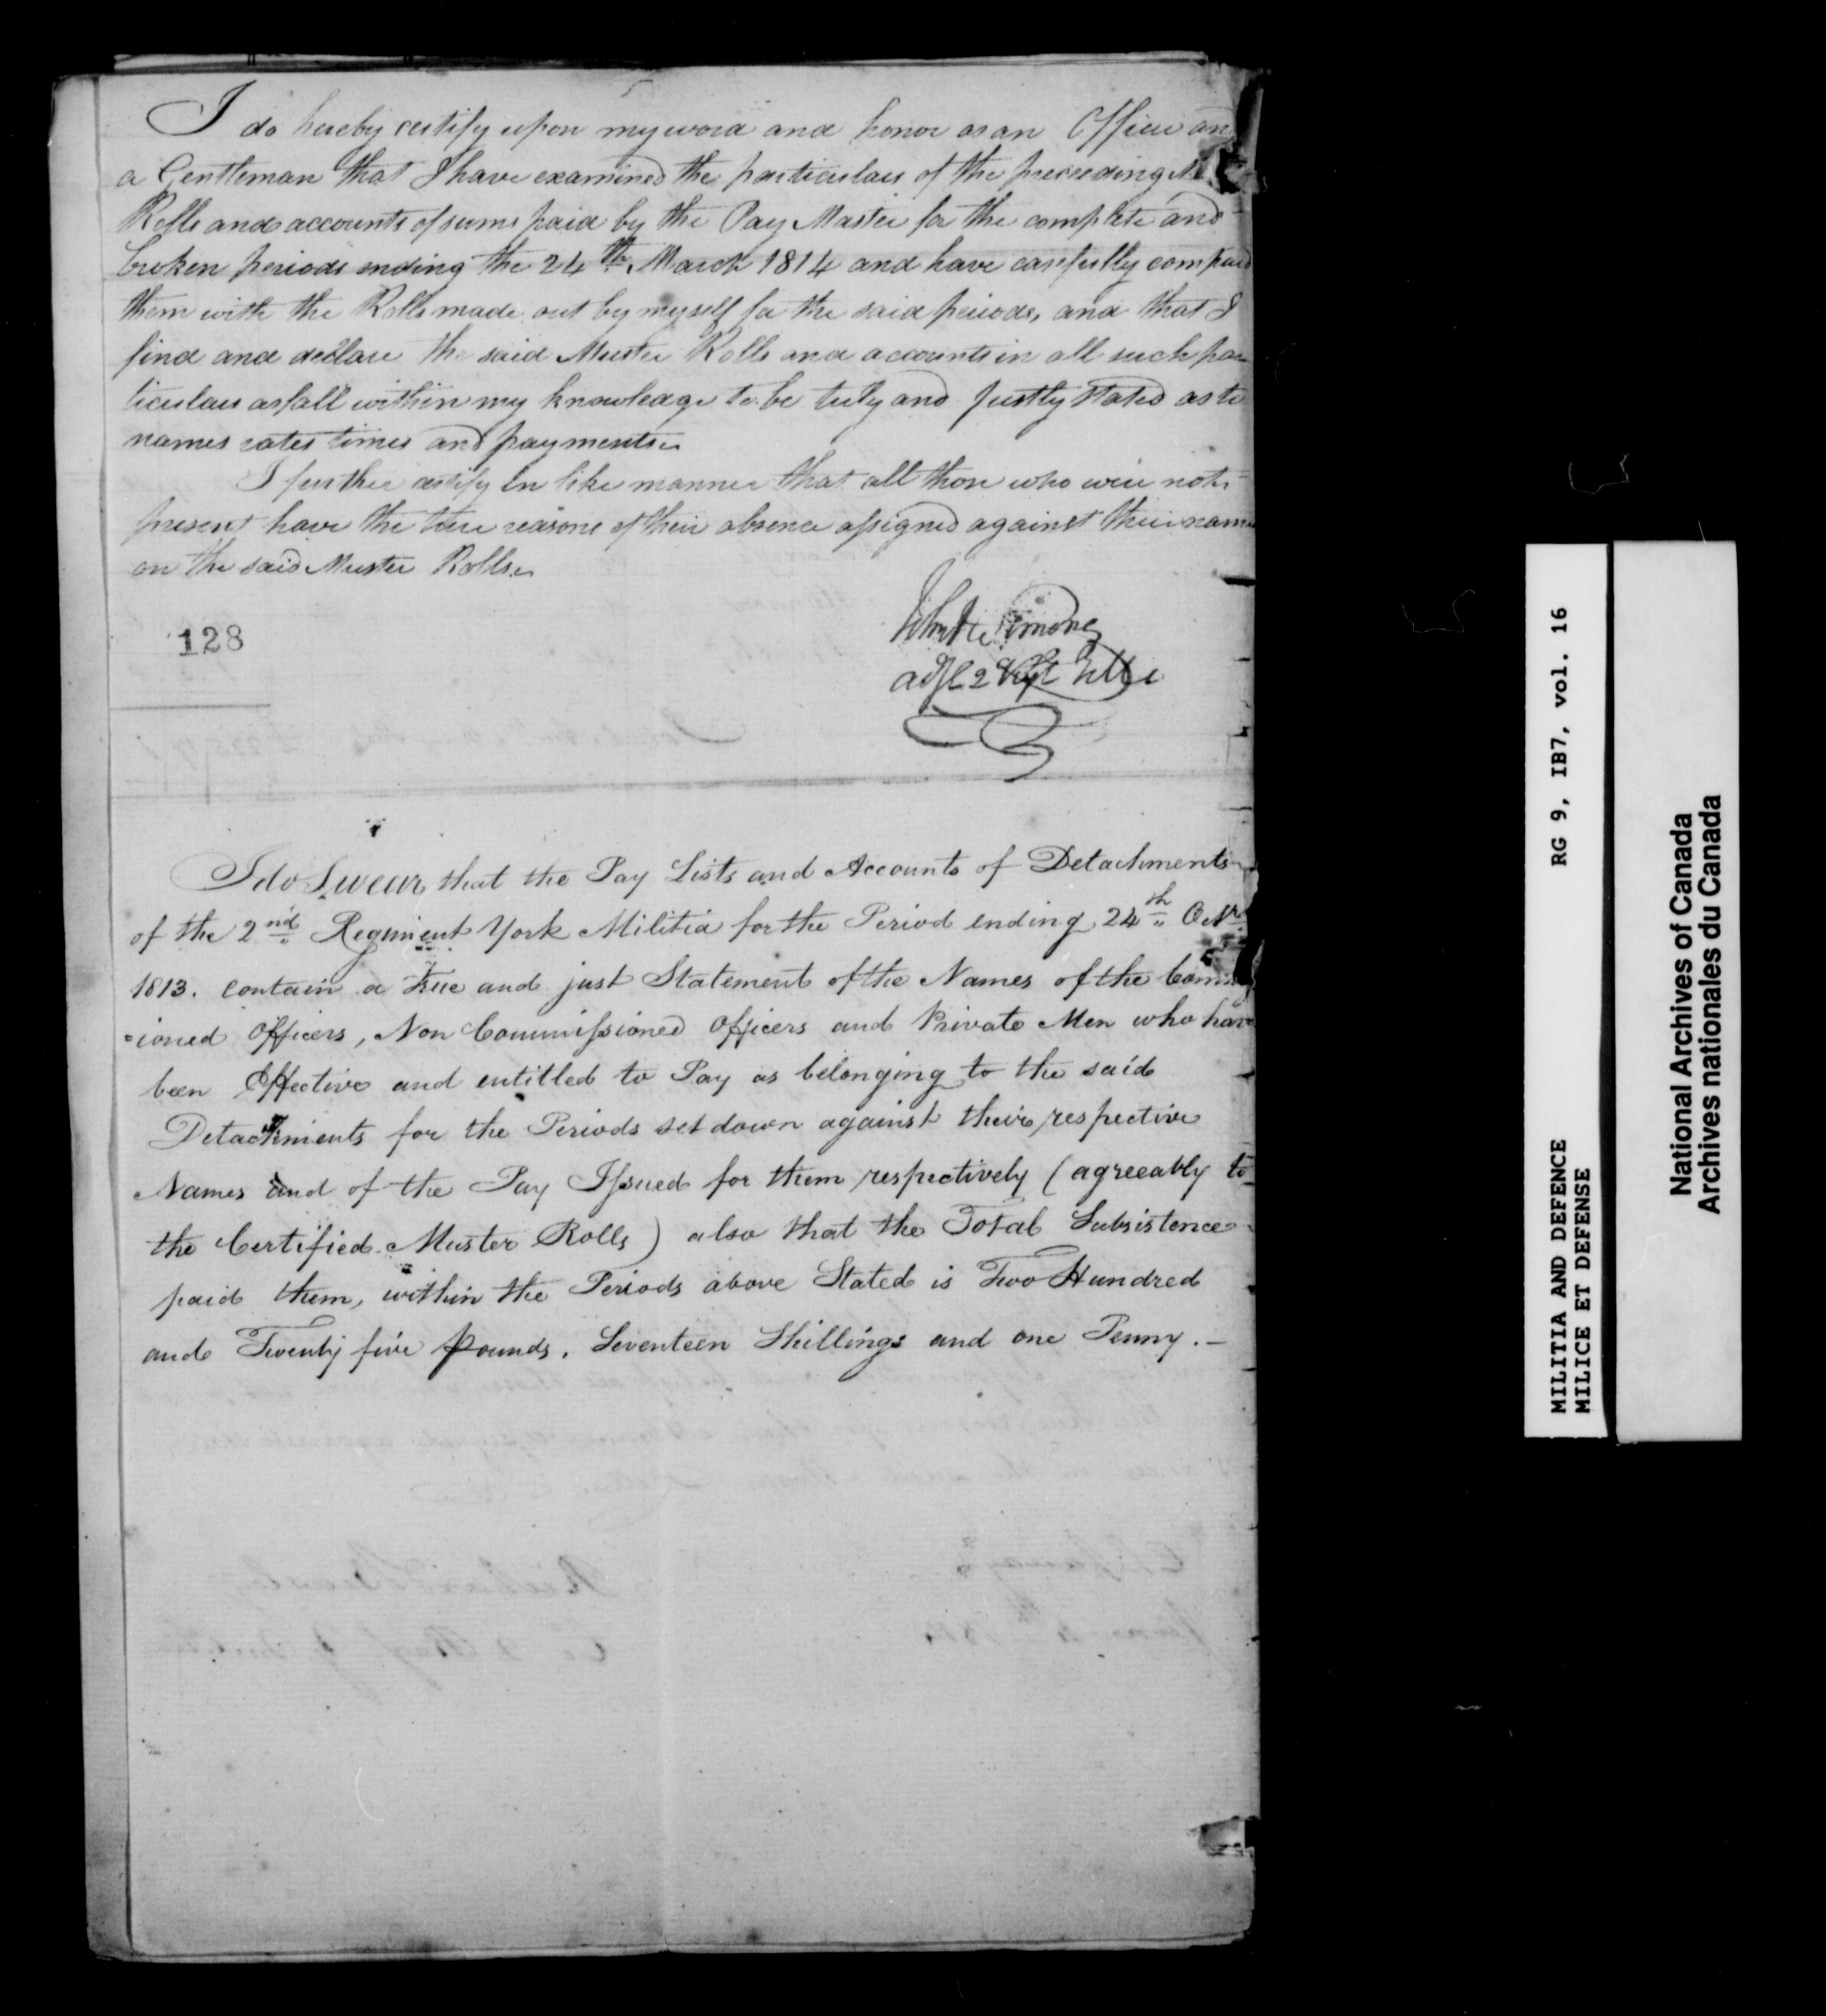 I do hereby certify upon my word and honor as an Officer and
a Gentleman that I have examined the particulars of the preceeding
Rolls and accounts of sums paid by the Pay Master for the complete and
broken periods ending the 24th March 1814 and have carefully compared
them with the Rolls made out by myself for the said periods, and that I
find and declare the said Muster Rolls and accounts in all such par
ticulars as fall within my knowledge to be truly and justly stated as to
names rates times and payments.
I further certify in like manner that all those who were not
present have the true reasons of their absence assigned against their names
on the said Muster Rolls.
128
John
adjt 2
I do Swear that the Pay Lists and Accounts of Detachments
of the 2nd Regiment York Militia for the Period ending 24th Octr
1813. contain a True and just Statement of the Names of the Commis
=ioned Officers, Non Commissioned Officers and Private Men who have
been Effective and entitled to Pay as belonging to the said
Detachments for the Periods set down against their respective
Names and of the Pay Issued for them respectively (agreeably to
the Certified Muster Rolls) also that the Total Subsistence
paid them, within the Periods above Stated is Two Hundred
and Twenty five Pounds, Seventeen Shillings and one Penny.-
MILITIA AND DEFENCE RG 9, IB7, vol. 16
MILICE ET DEFENSE
National Archives of Canada
Archives nationales du Canada